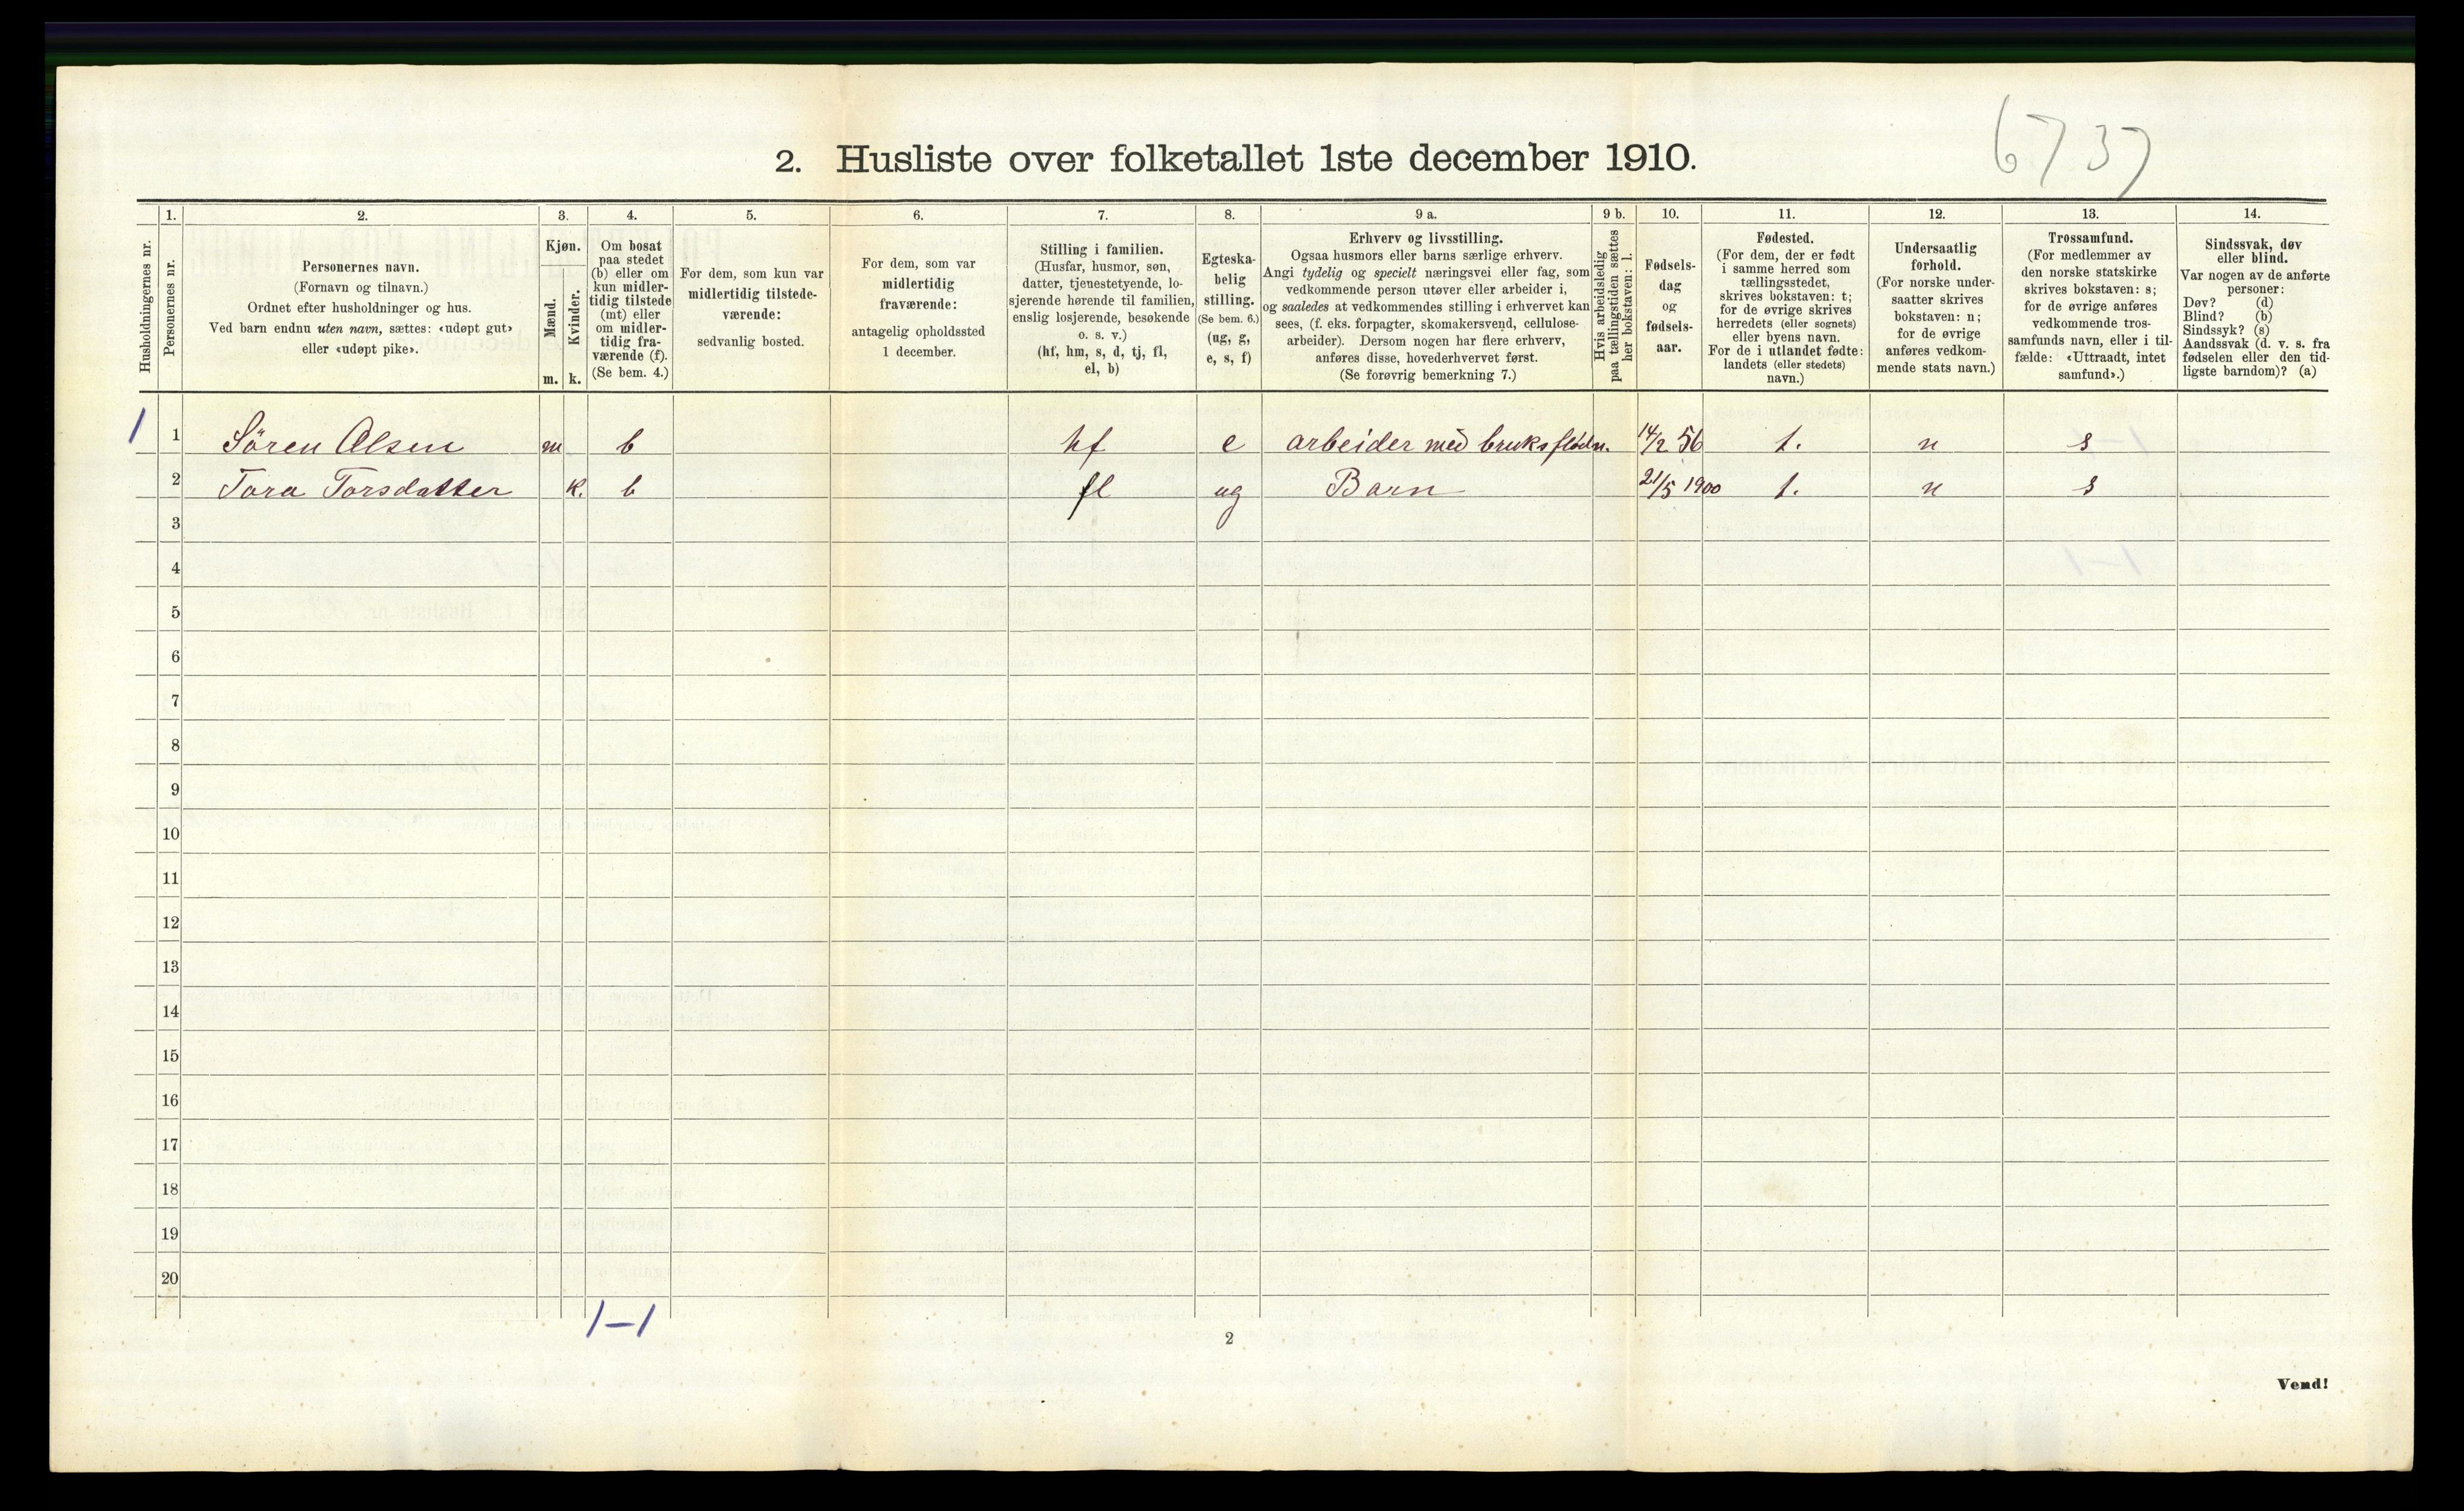 6737
2. Husliste over folketallet 1ste december 1910.
Husholdningernes nr.
1.
Personernes nr.
2.
Personernes navn.
(Fornavn og tilnavn.)
Ordnet efter husholdninger og hus.
Ved barn endnu uten navn, sættes: «udøpt gut»
eller «udøpt pike».
3.
Kjøn.
Mænd.
m.
Kvinder.
k.
4.
Om bosat
paa stedet
(b) eller om
kun midler-
tidig tilstede
(mt) eller
om midler-
tidig fra-
værende (f).
(Se bem. 4.)
5.
For dem, som kun var
midlertidig tilstede-
værende:
sedvanlig bosted.
6.
For dem, som var
midlertidig
fraværende:
antagelig opholdssted
1 december.
7.
Stilling i familien.
(Husfar, husmor, søn,
datter, tjenestetyende, lo-
sjerende hørende til familien,
enslig losjerende, besøkende
o. s. v.)
(hf, hm, s, d, tj, fl,
el, b)
8.
Egteska-
belig
stilling.
(Se bem. 6.)
(ug, g,
e, s, f)
9 a.
Erhverv og livsstilling.
Ogsaa husmors eller barns særlige erhverv.
Angi tydelig og specielt næringsvei eller fag, som
vedkommende person utøver eller arbeider i,
og saaledes at vedkommendes stilling i erhvervet kan
sees, (f. eks. forpagter, skomakersvend, cellulose-
arbeider). Dersom nogen har flere erhverv,
anføres disse, hovederhvervet først.
(Se forøvrig bemerkning 7.)
9 b.
Hvis arbeidsledig
paa tællingstiden sættes
her bokstaven: l.
10.
Fødsels-
dag
og
fødsels-
aar.
11.
Fødested.
(For dem, der er født
i samme herred som
tællingsstedet,
skrives bokstaven: t;
for de øvrige skrives
herredets (eller sognets)
eller byens navn.
For de i utlandet fødte:
landets (eller stedets)
navn.)
12.
Undersaatlig
forhold.
(For norske under-
saatter skrives
bokstaven: n;
for de øvrige
anføres vedkom-
mende stats navn.)
13.
Trossamfund.
(For medlemmer av
den norske statskirke
skrives bokstaven: s;
for de øvrige anføres
vedkommende tros-
samfunds navn, eller i til-
fælde: «Uttraadt, intet
samfund».)
14.
Sindssvak, døv
eller blind.
Var nogen av de anførte
personer:
Døv? (d)
Blind? (b)
Sindssyk? (s)
Aandssvak (d. v. s. fra
fødselen eller den tid-
ligste barndom)? (a)
1 1 Sören Olsen m b hf e arbeider med bruksflödn. 14/2 56 t. n s
2 Tora Torsdatter k. b fl ug Barn 21/5 1900 t. n s
3
4
5
6
7
8
9
10
11
12
13
14
15
16
17
18
19
20
1-1
2
Vend!